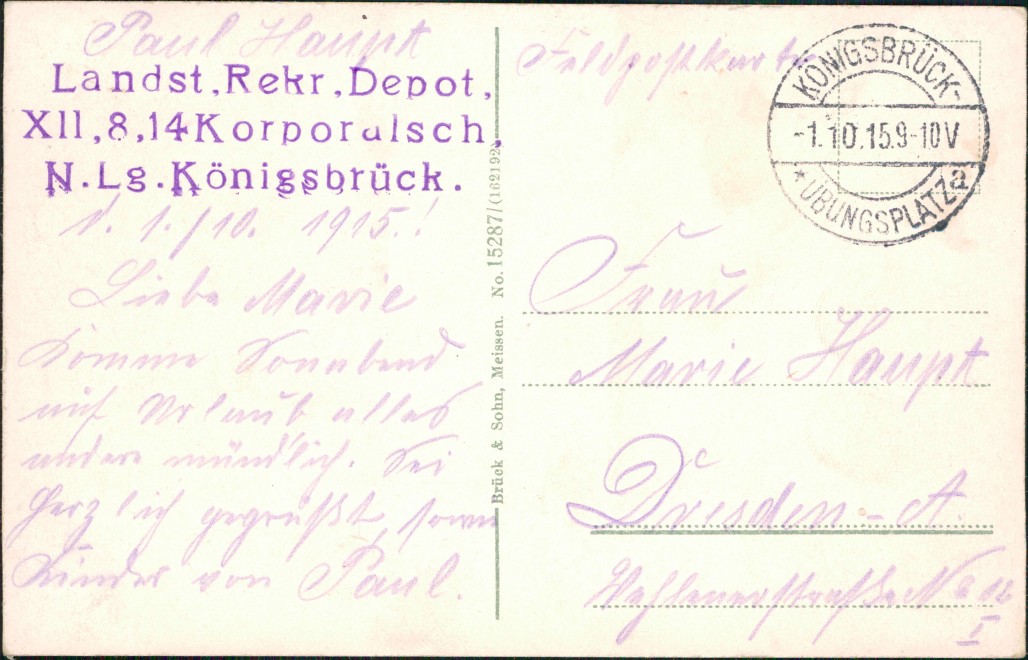 Paul Haupt
Landst, Rekr, Depot,
XII, 8, 14 Korporalsch,
N. Lg. Königsbrück.
d. 1./10. 1915.!
Liebe Marie
Komme Sonnabend
auf Urlaub alles
andere mündlich. Sei
herzlich gegrüßt, sowie
Kinder von Paul.
Brück & Sohn, Meissen. No. 15287/(16219
Feldpostkarte
KÖNIGSBRÜCK-
-1.10.15.9-10V
* ÜBUNGSPLATZ a
Frau
Marie Haupt
Dresden-A.
Wehlenerstraße No
I